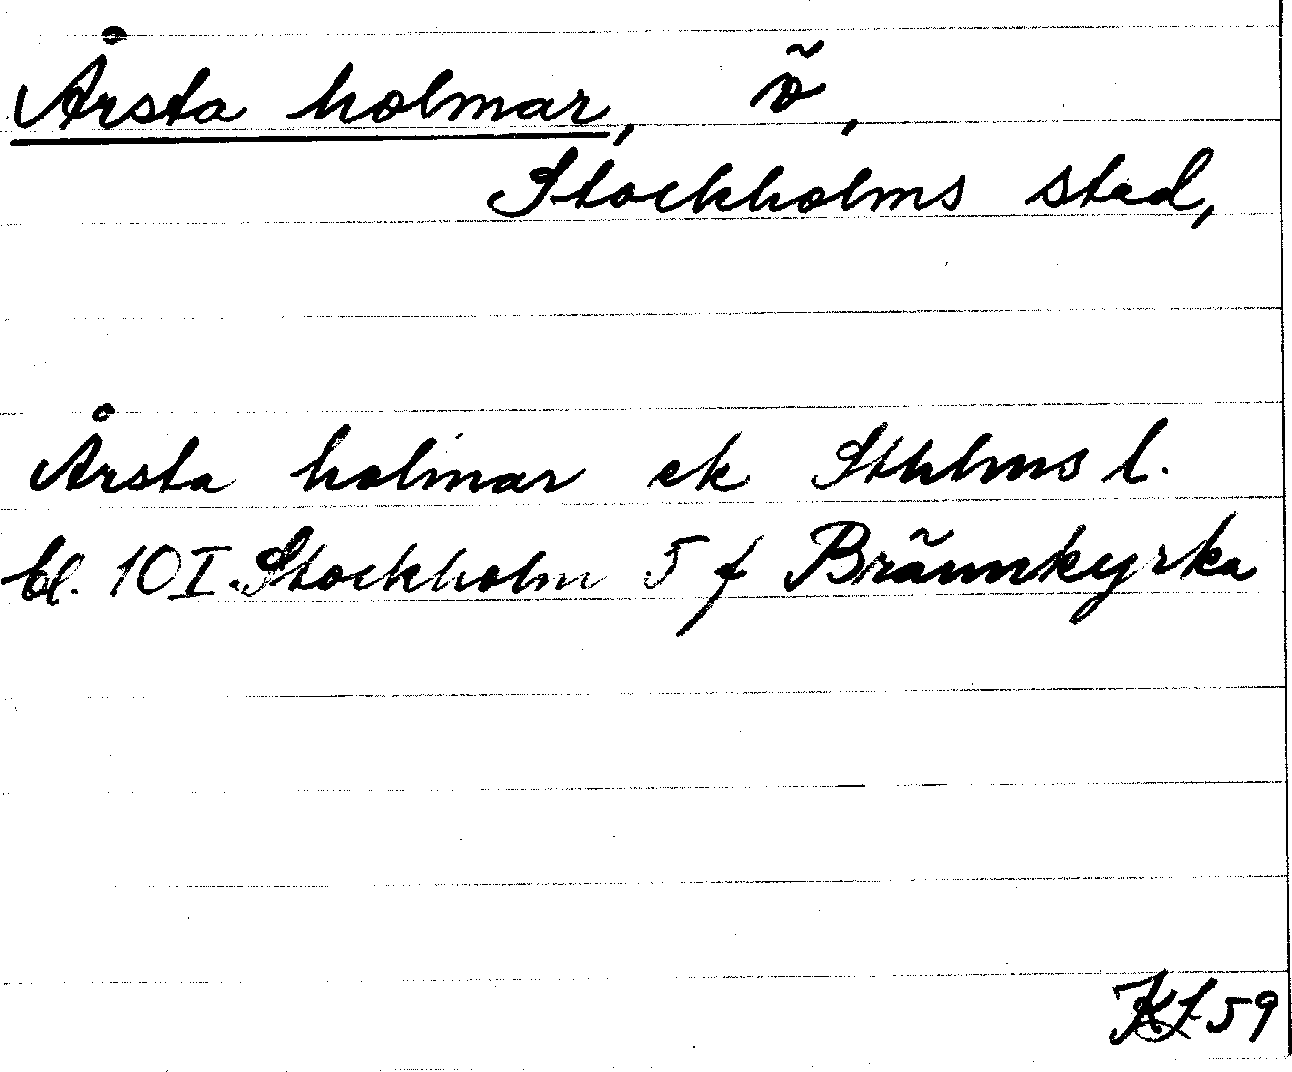 Årsta holmar, ö,
Stockholms stad,
Årsta holmar ek Sthlms l.
bl. 10 I. Stockholm 5 f Brännkyrka
59